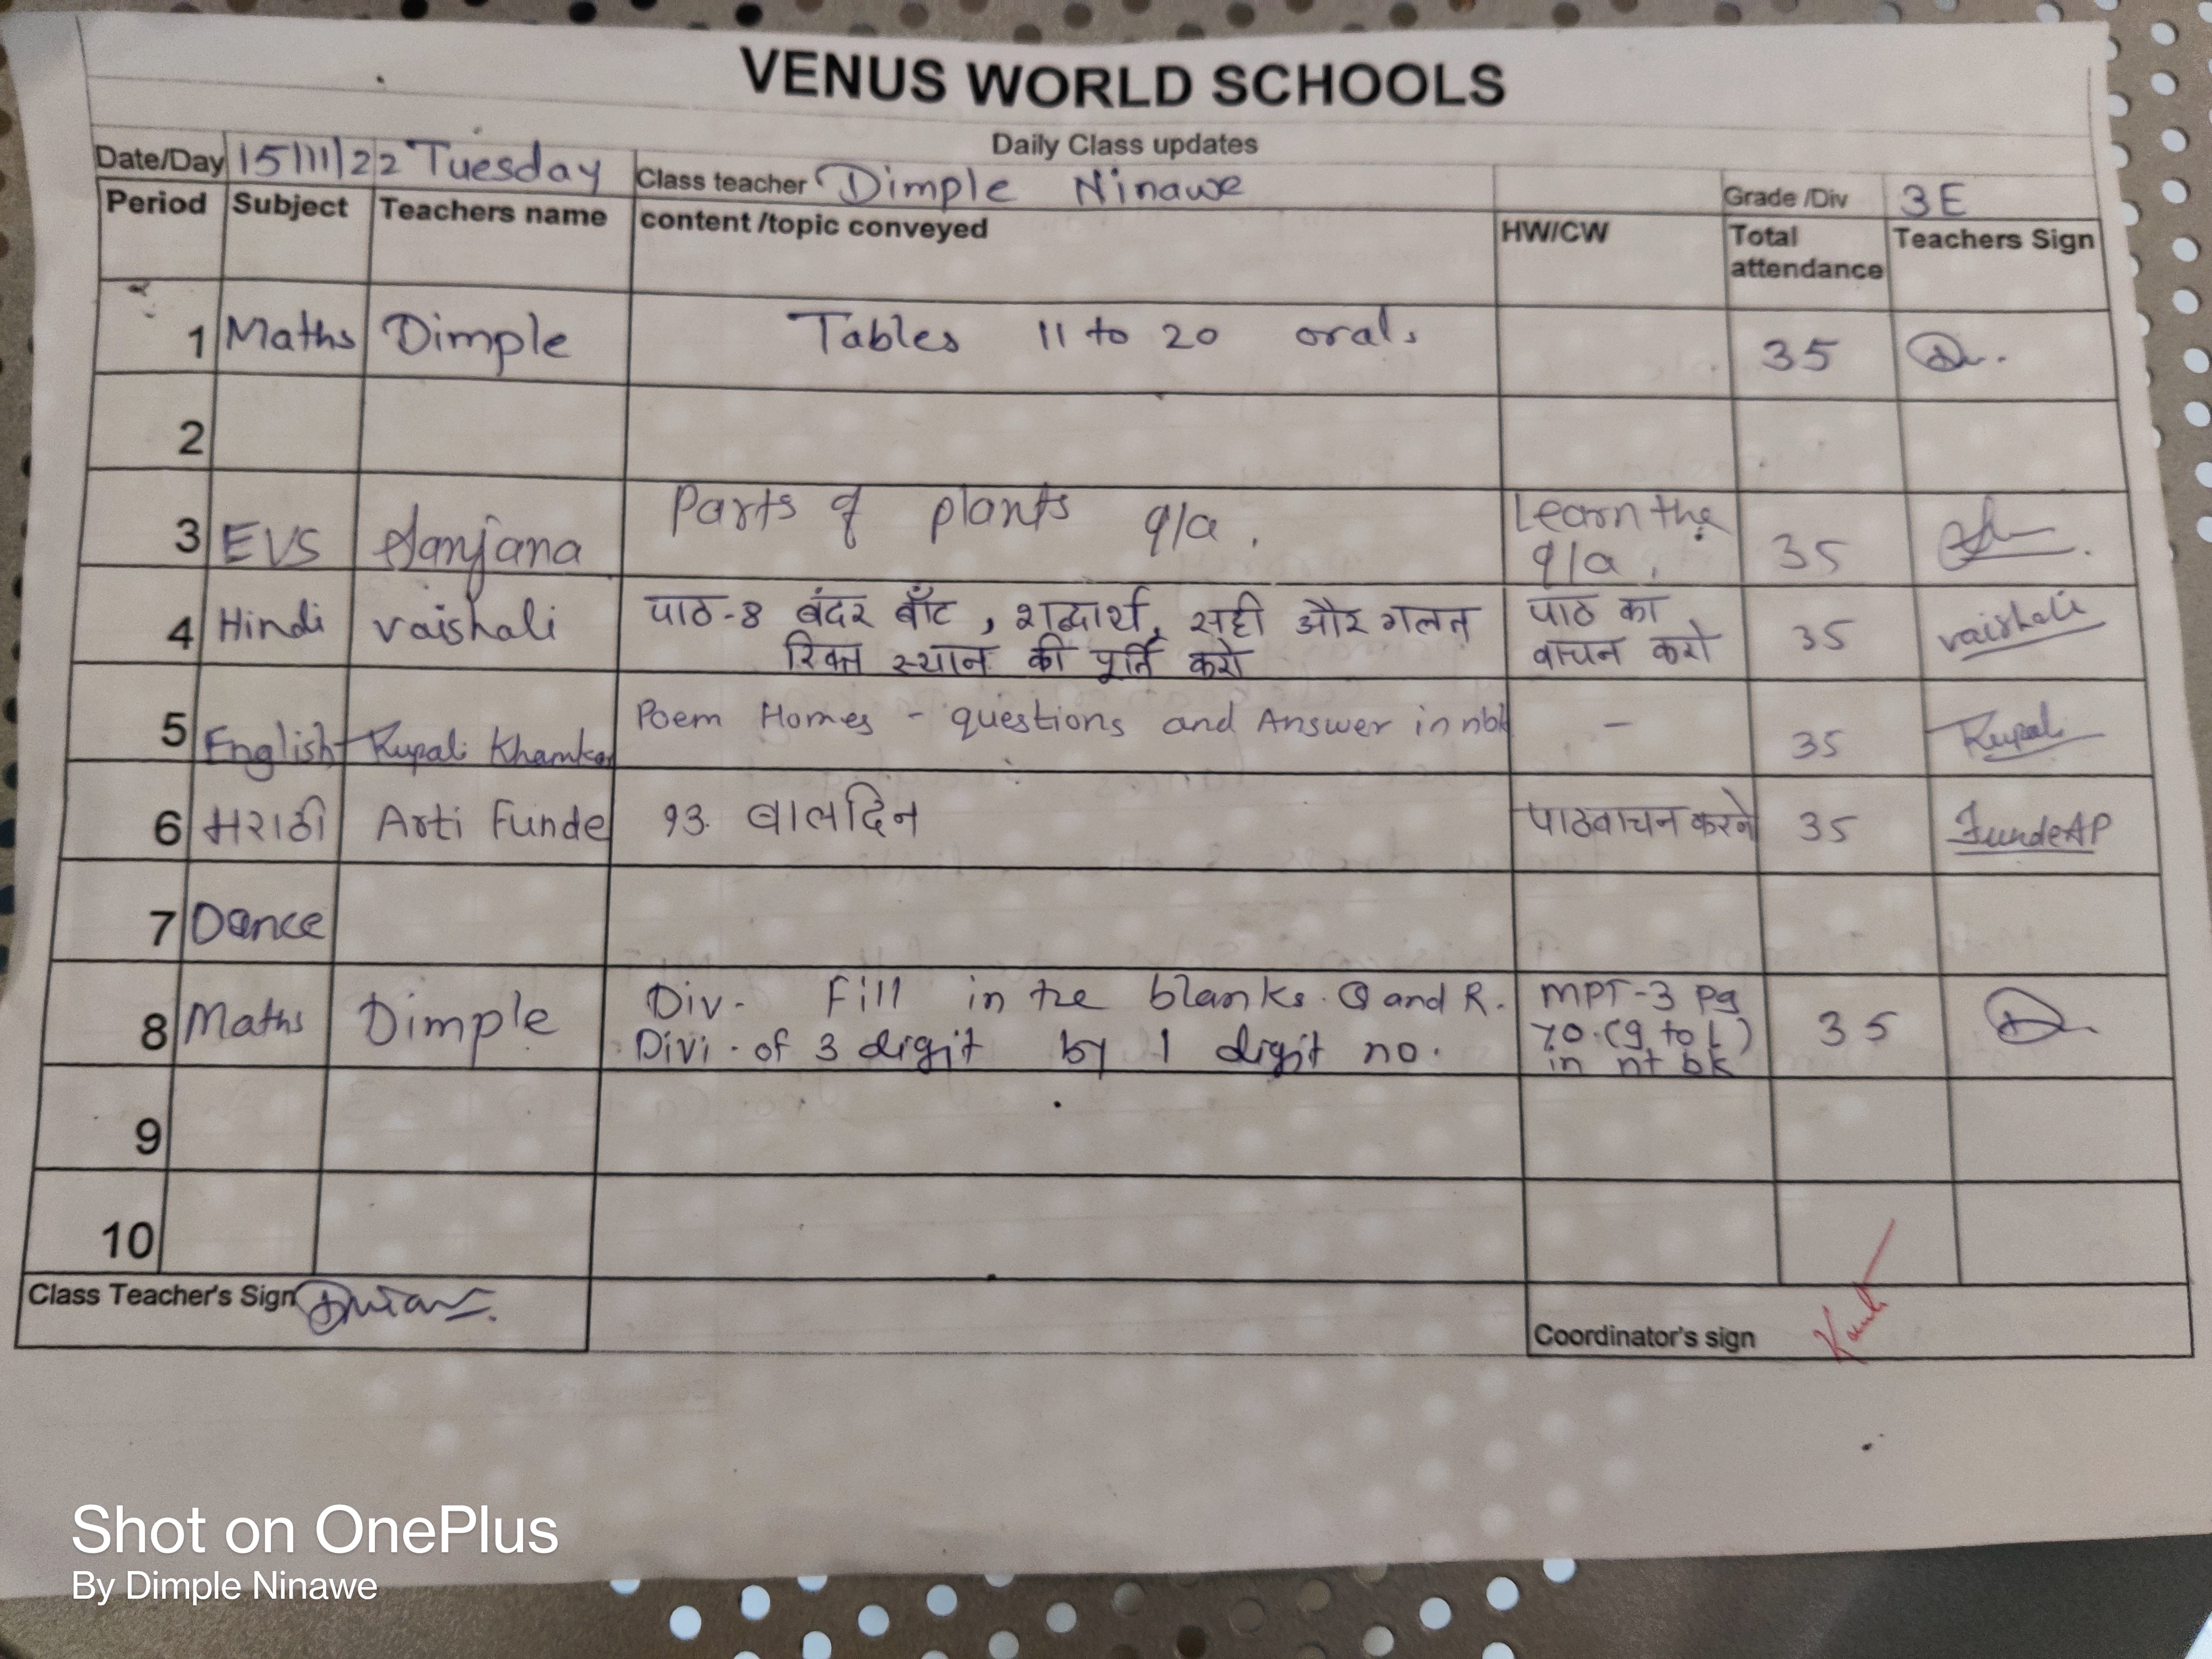 VENUS WORLD SCHOOLS
Daily Class updates
Date/Day 15/11/22 Tuesday Class teacher Dimple Ninawe Grade /Div 3E
Period Subject Teachers name content /topic conveyed HW/CW Total attendance Teachers Sign
1 Maths Dimple Tables 11 to 20 oral. 35
2
3 EVS Sanjana Parts of plants q/a. Learn the q/a. 35
4 Hindi vaishali पाठ-8 बंदर बाँट, शब्दार्थ, सही और गलत पाठ का 35 vaishali
रिक्त स्थान की पूर्ति करो वाचन करो
5 English Rupali Khamkar Poem Homes - questions and Answer in nbk - 35 Rupali
6 मराठी Arti Funde १३. बालदिन पाठवाचन करणे 35 FundeAP
7 Dance
8 Maths Dimple Div. Fill in the blanks. Q and R. MPT-3 Pg 35
Divi. of 3 digit by 1 digit no. 70. (g to l)
in nt bk
9
10
Class Teacher's Sign
Coordinator's sign
Shot on OnePlus
By Dimple Ninawe